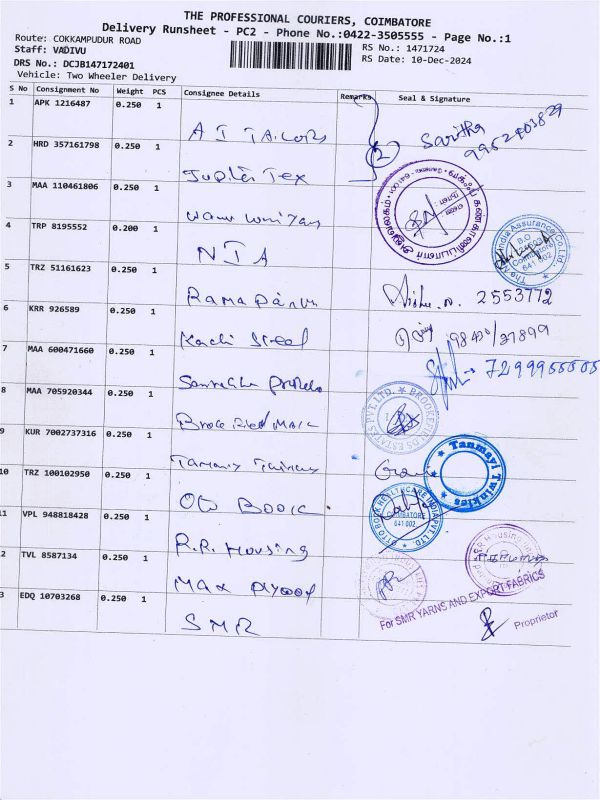 THE PROFESSIONAL COURIERS, COIMBATORE
Delivery Runsheet - PC2 - Phone No.:0422-3505555 - Page No.:1
Route: COKKAMPUDUR ROAD
RS No.: 1471724
Staff: VADIVU
RS Date: 10-Dec-2024
DRS No.: DCJB147172401
Vehicle: Two Wheeler Delivery
S No Consignment No Weight PCS Consignee Details Remarks Seal & Signature
1 APK 1216487 0.250 1
A I TAILORS
Saritha
2 HRD 357161798 0.250 1
Jupiter Tex
3 MAA 110461806 0.250 1
4 TRP 8195552 0.200 1
N I A
B.O
Coimbatore
641 002
5 TRZ 51161623 0.250 1
2553772
6 KRR 926589 0.250 1
7 MAA 600471660 0.250 1
8 MAA 705920344 0.250 1
BROOKEFIELDS ESTATES PVT. LTD.
9 KUR 7002737316 0.250 1
Tanmayi Twinkles
10 TRZ 100102950 0.250 1
Otto Bock
OTTO BOCK HEALTHCARE INDIA PVT. LTD.
COIMBATORE
641 002
11 VPL 948818428 0.250 1
R.R. Housing
12 TVL 8587134 0.250 1
Max Plywood
13 EDQ 10703268 0.250 1
SMR
For SMR YARNS AND EXPORT FABRICS
Proprietor